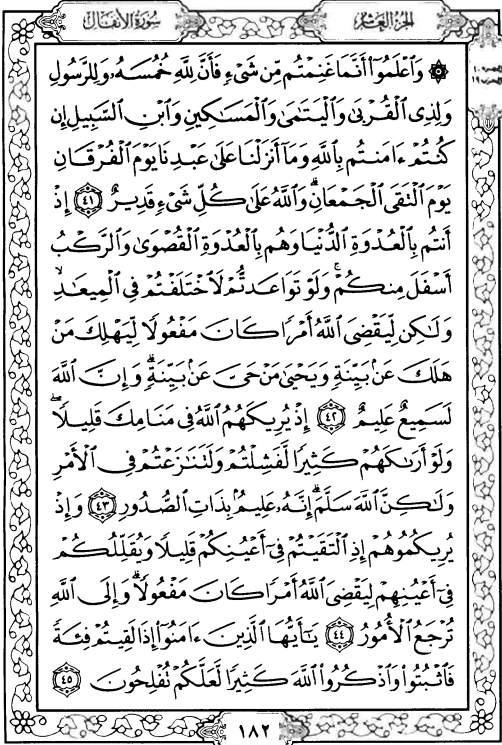 سُورَةُ الأَنفَال
الجُزءُ العَاشِر
۞ وَٱعْلَمُوٓا۟ أَنَّمَا غَنِمْتُم مِّن شَىْءٍ فَأَنَّ لِلَّهِ خُمُسَهُۥ وَلِلرَّسُولِ
وَلِذِى ٱلْقُرْبَىٰ وَٱلْيَتَـٰمَىٰ وَٱلْمَسَـٰكِينِ وَٱبْنِ ٱلسَّبِيلِ إِن
كُنتُمْ ءَامَنتُم بِٱللَّهِ وَمَآ أَنزَلْنَا عَلَىٰ عَبْدِنَا يَوْمَ ٱلْفُرْقَانِ
يَوْمَ ٱلْتَقَى ٱلْجَمْعَانِ ۗ وَٱللَّهُ عَلَىٰ كُلِّ شَىْءٍ قَدِيرٌ ٤١ إِذْ
أَنتُم بِٱلْعُدْوَةِ ٱلدُّنْيَا وَهُم بِٱلْعُدْوَةِ ٱلْقُصْوَىٰ وَٱلرَّكْبُ
أَسْفَلَ مِنكُمْ ۚ وَلَوْ تَوَاعَدتُّمْ لَٱخْتَلَفْتُمْ فِى ٱلْمِيعَـٰدِ ۙ
وَلَـٰكِن لِّيَقْضِىَ ٱللَّهُ أَمْرًا كَانَ مَفْعُولًا لِّيَهْلِكَ مَنْ
هَلَكَ عَنۢ بَيِّنَةٍ وَيَحْيَىٰ مَنْ حَىَّ عَنۢ بَيِّنَةٍ ۗ وَإِنَّ ٱللَّهَ
لَسَمِيعٌ عَلِيمٌ ٤٢ إِذْ يُرِيكَهُمُ ٱللَّهُ فِى مَنَامِكَ قَلِيلًا ۖ
وَلَوْ أَرَىٰكَهُمْ كَثِيرًا لَّفَشِلْتُمْ وَلَتَنَـٰزَعْتُمْ فِى ٱلْأَمْرِ
وَلَـٰكِنَّ ٱللَّهَ سَلَّمَ ۗ إِنَّهُۥ عَلِيمٌۢ بِذَاتِ ٱلصُّدُورِ ٤٣ وَإِذْ
يُرِيكُمُوهُمْ إِذِ ٱلْتَقَيْتُمْ فِىٓ أَعْيُنِكُمْ قَلِيلًا وَيُقَلِّلُكُمْ
فِىٓ أَعْيُنِهِمْ لِيَقْضِىَ ٱللَّهُ أَمْرًا كَانَ مَفْعُولًا ۗ وَإِلَى ٱللَّهِ
تُرْجَعُ ٱلْأُمُورُ ٤٤ يَـٰٓأَيُّهَا ٱلَّذِينَ ءَامَنُوٓا۟ إِذَا لَقِيتُمْ فِئَةً
فَٱثْبُتُوا۟ وَٱذْكُرُوا۟ ٱللَّهَ كَثِيرًا لَّعَلَّكُمْ تُفْلِحُونَ ٤٥
١٨٢